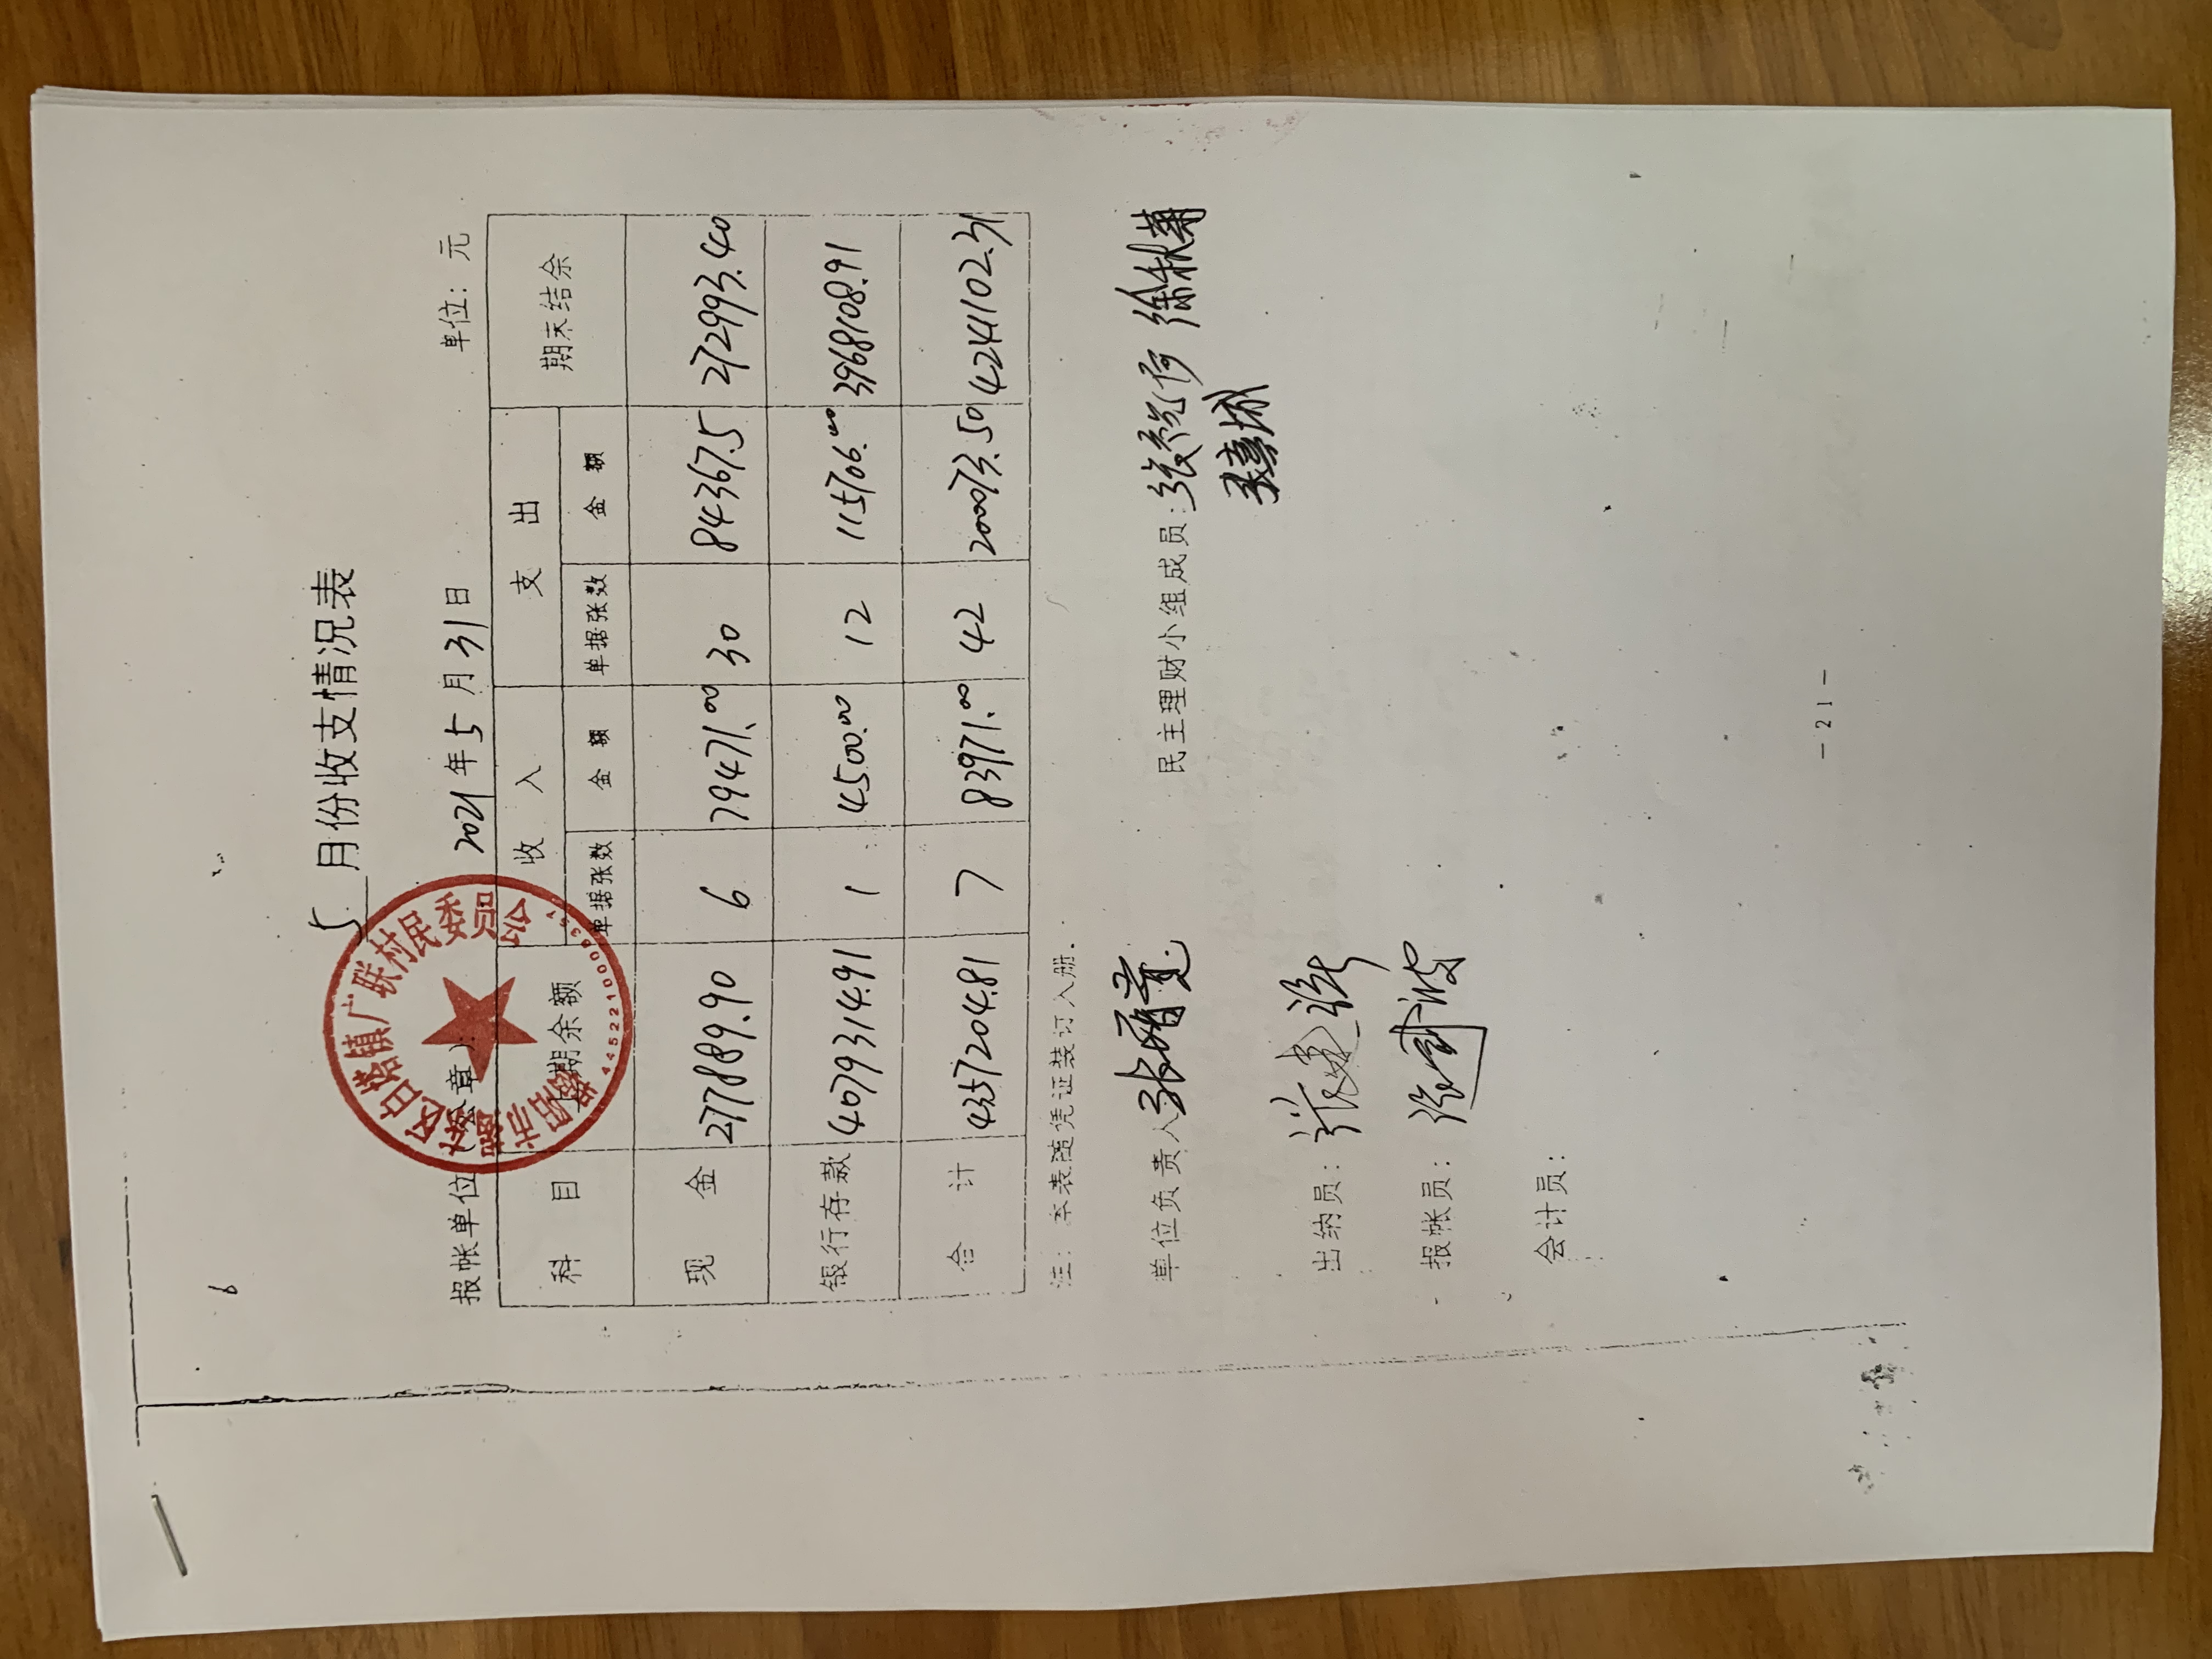 5 月份收支情况表
报帐单位(公章): 2021年 5 月 31 日 单位:元
揭阳市揭东区白塔镇广联村民委员会
科 目 上期余额 收 入 支 出 期末结余
单据张数 金 额 单据张数 金 额
现 金 277889.90 6 79471.00 30 84367.5 272993.40
银行存款 4079314.91 1 4500.00 12 115706.00 3968108.91
合 计 4357204.81 7 83971.00 42 200073.50 4241102.31
注:本表随凭证装订入册.
单位负责人 民主理财小组成员:
出纳员:
报帐员:
会计员:
—21—